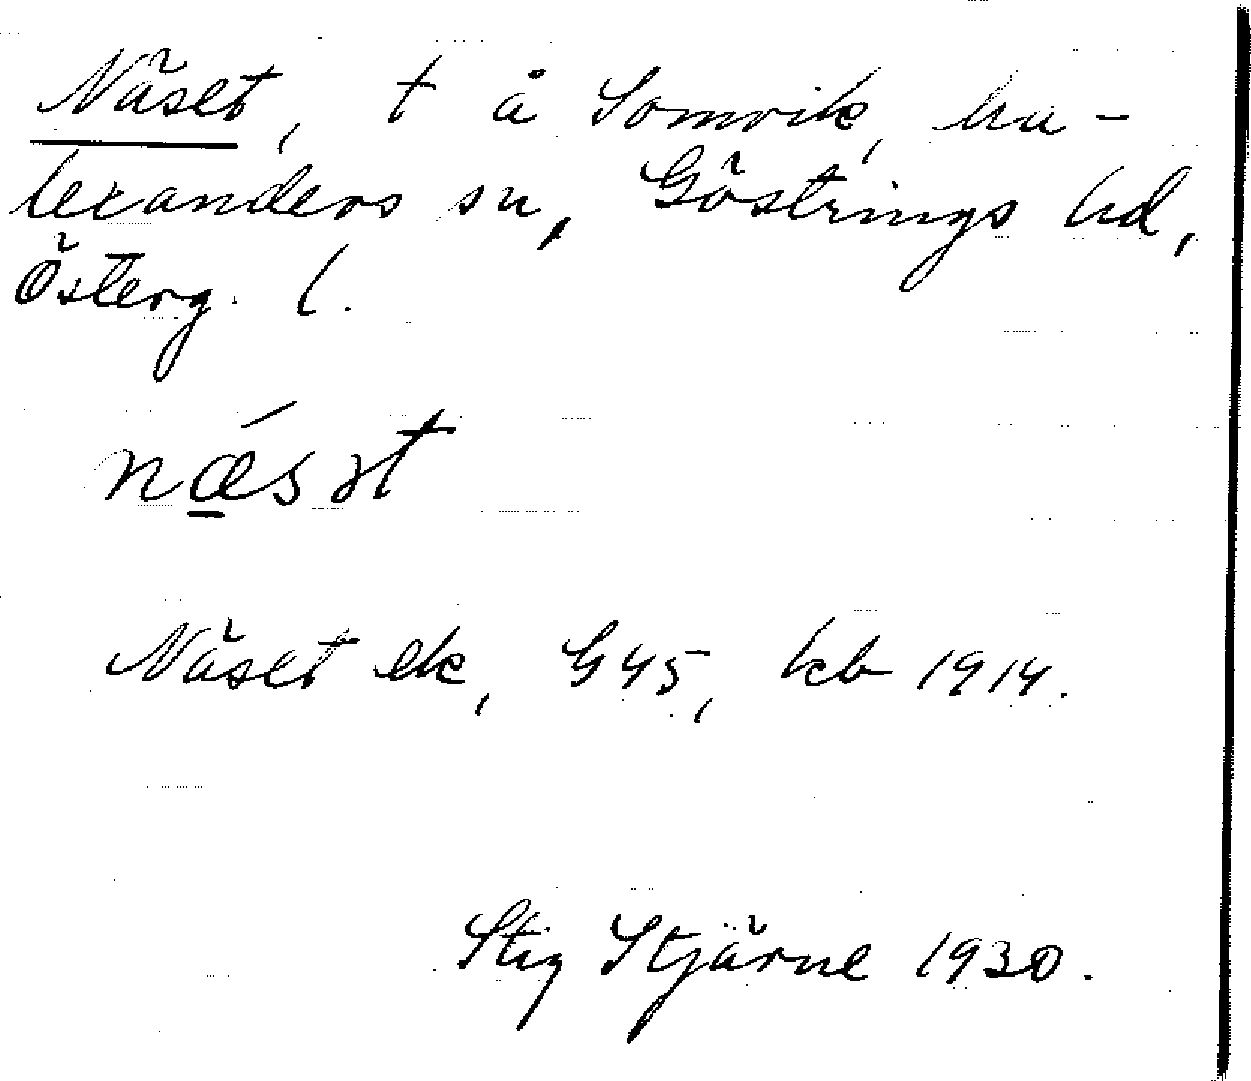 Näset, t å Somvik, Ma-
lexanders sn, Göstrings hd,
Österg. l.
nǽ̱sət
Näset ek, G 45, kb 1914.
Stig Stjärne 1930.